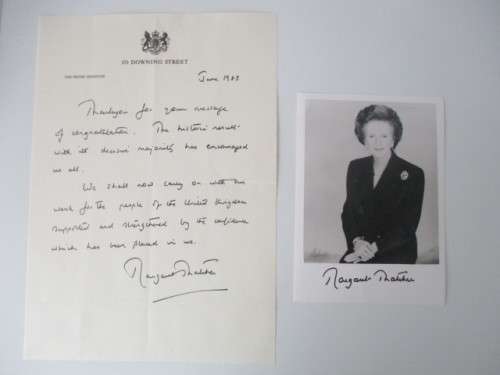 10 DOWNING STREET
THE PRIME MINISTER
June 1983
Thankyou for your message
of congratulation. The historic result
with its decisive majority has encouraged
us all.
We shall now carry on with our
work for the people of the United Kingdom
supported and strengthened by the confidence
which has been placed in us.
Margaret Thatcher
Margaret Thatcher